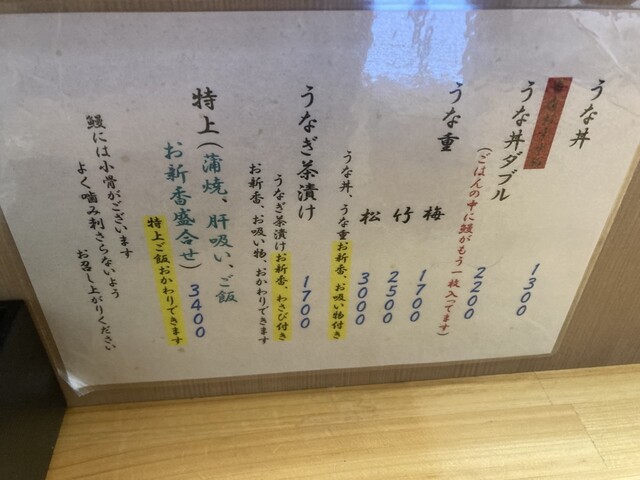 うな丼 1300
うな丼ダブル 2200
(ごはんの中に鰻がもう一枚入ってます)
うな重
梅 1700
竹 2500
松 3000
うな丼、うな重お新香、お吸い物付き
うなぎ茶漬け 1700
うなぎ茶漬けお新香、わさび付き
お新香、お吸い物、おかわりできます
特上(蒲焼、肝吸い、ご飯
お新香盛合せ) 3400
特上ご飯おかわりできます
鰻には小骨がございます
よく噛み刺さらないよう
お召し上がりください